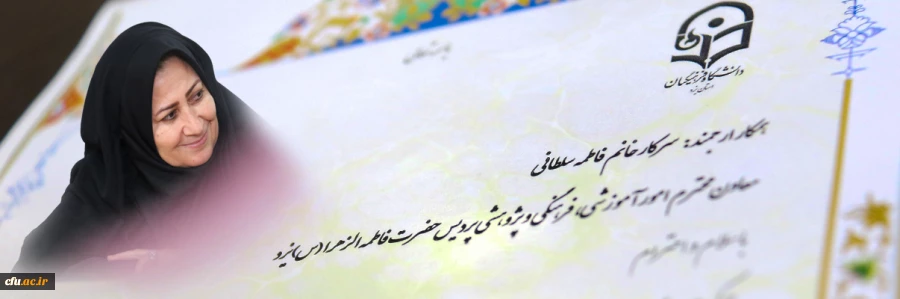 باسمه تعالی
دانشگاه فرهنگیان
استان یزد
همکار ارجمند: سرکار خانم فاطمه سلطانی
معاون محترم امور آموزشی، فرهنگی و پژوهشی پردیس حضرت فاطمه الزهرا (س) یزد
با سلام و احترام
cfu.ac.ir